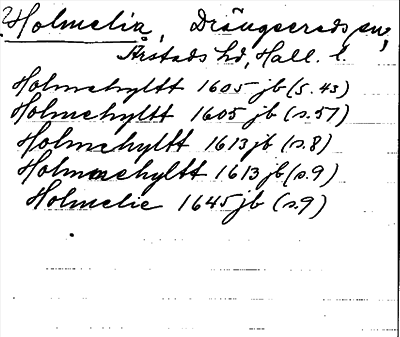 ? Holmelia, Drängsereds sn,
Årstads hd, Hall. l.
Holmehyltt 1605 jb (s. 43)
Holmehyltt 1605 jb (s. 57)
Holmehyltt 1613 jb (s. 8)
Holmehyltt 1613 jb (s. 9)
Holmelie 1645 jb (s. 9)